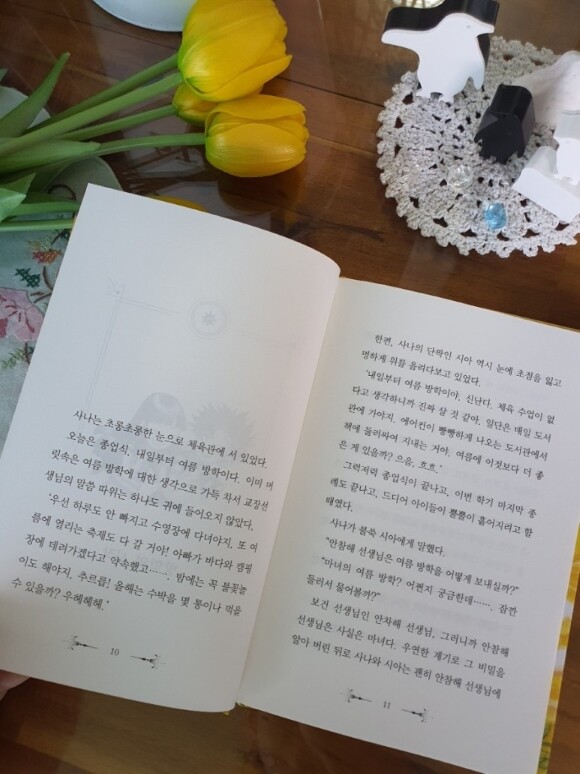 사나는 초롱초롱한 눈으로 체육관에 서 있었다.
오늘은 종업식, 내일부터 여름 방학이다. 이미 머
릿속은 여름 방학에 대한 생각으로 가득 차서 교장선
생님의 말씀 따위는 하나도 귀에 들어오지 않았다.
'우선 하루도 안 빠지고 수영장에 다녀야지. 또 여
름에 열리는 축제도 다 갈 거야! 아빠가 바다와 캠핑
장에 데려가겠다고 약속했고……. 밤에는 꼭 불꽃놀
이도 해야지. 츄르릅! 올해는 수박을 몇 통이나 먹을
수 있을까? 우헤헤헤.'
10
한편, 사나의 단짝인 시아 역시 눈에 초점을 잃고
멍하게 위를 올려다보고 있었다.
'내일부터 여름 방학이야. 신난다. 체육 수업이 없
다고 생각하니까 진짜 살 것 같아. 일단은 매일 도서
관에 가야지. 에어컨이 빵빵하게 나오는 도서관에서
책에 둘러싸여 지내는 거야. 여름에 이것보다 더 좋
은 게 있을까? 으음, 흐흐.'
그럭저럭 종업식이 끝나고, 이번 학기 마지막 종
례도 끝나고, 드디어 아이들이 뿔뿔이 흩어지려고 할
때였다.
사나가 불쑥 시아에게 말했다.
"안참해 선생님은 여름 방학을 어떻게 보내실까?"
"마녀의 여름 방학? 어쩐지 궁금한데……. 잠깐
들러서 물어볼까?"
보건 선생님인 안차해 선생님, 그러니까 안참해
선생님은 사실은 마녀다. 우연한 계기로 그 비밀을
알아 버린 뒤로 사나와 시아는 괜히 안참해 선생님에
11